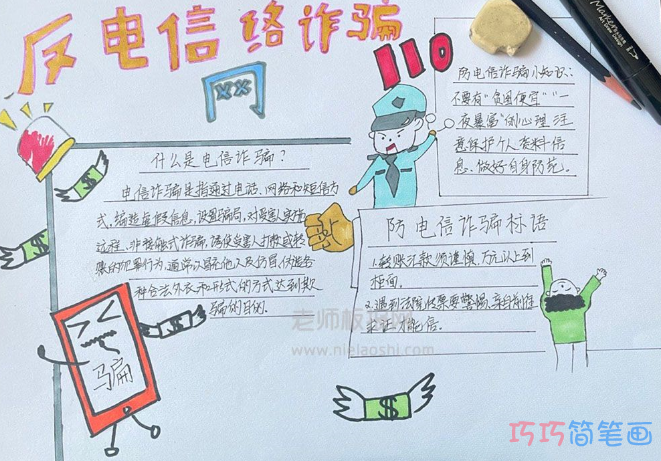 反电信网络诈骗
110
什么是电信诈骗?
电信诈骗是指通过电话、网络和短信方
式,编造虚假信息,设置骗局,对受害人实施
过程、非接触式诈骗,诱使受害人打款或转
账的犯罪行为,通常以冒充他人及仿冒、伪造各
种合法外衣和形式的方式达到欺
骗的目的。
防电信诈骗小知识:
不要有“贪图便宜”“一
夜暴富”的心理,注
意保护个人资料信
息、做好自身防范。
防电信诈骗标语
1.转账汇款须谨慎,万元以上到
柜面。
2.遇到法院
才能信。
骗
$
$
$
$
老师板报网
www.nielaoshi.com
巧巧简笔画